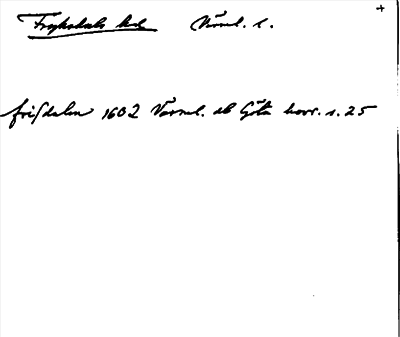 Fryksdals hd Värml. l. +
frisdalen 1602 Värml. ab Göta hovr. s. 25